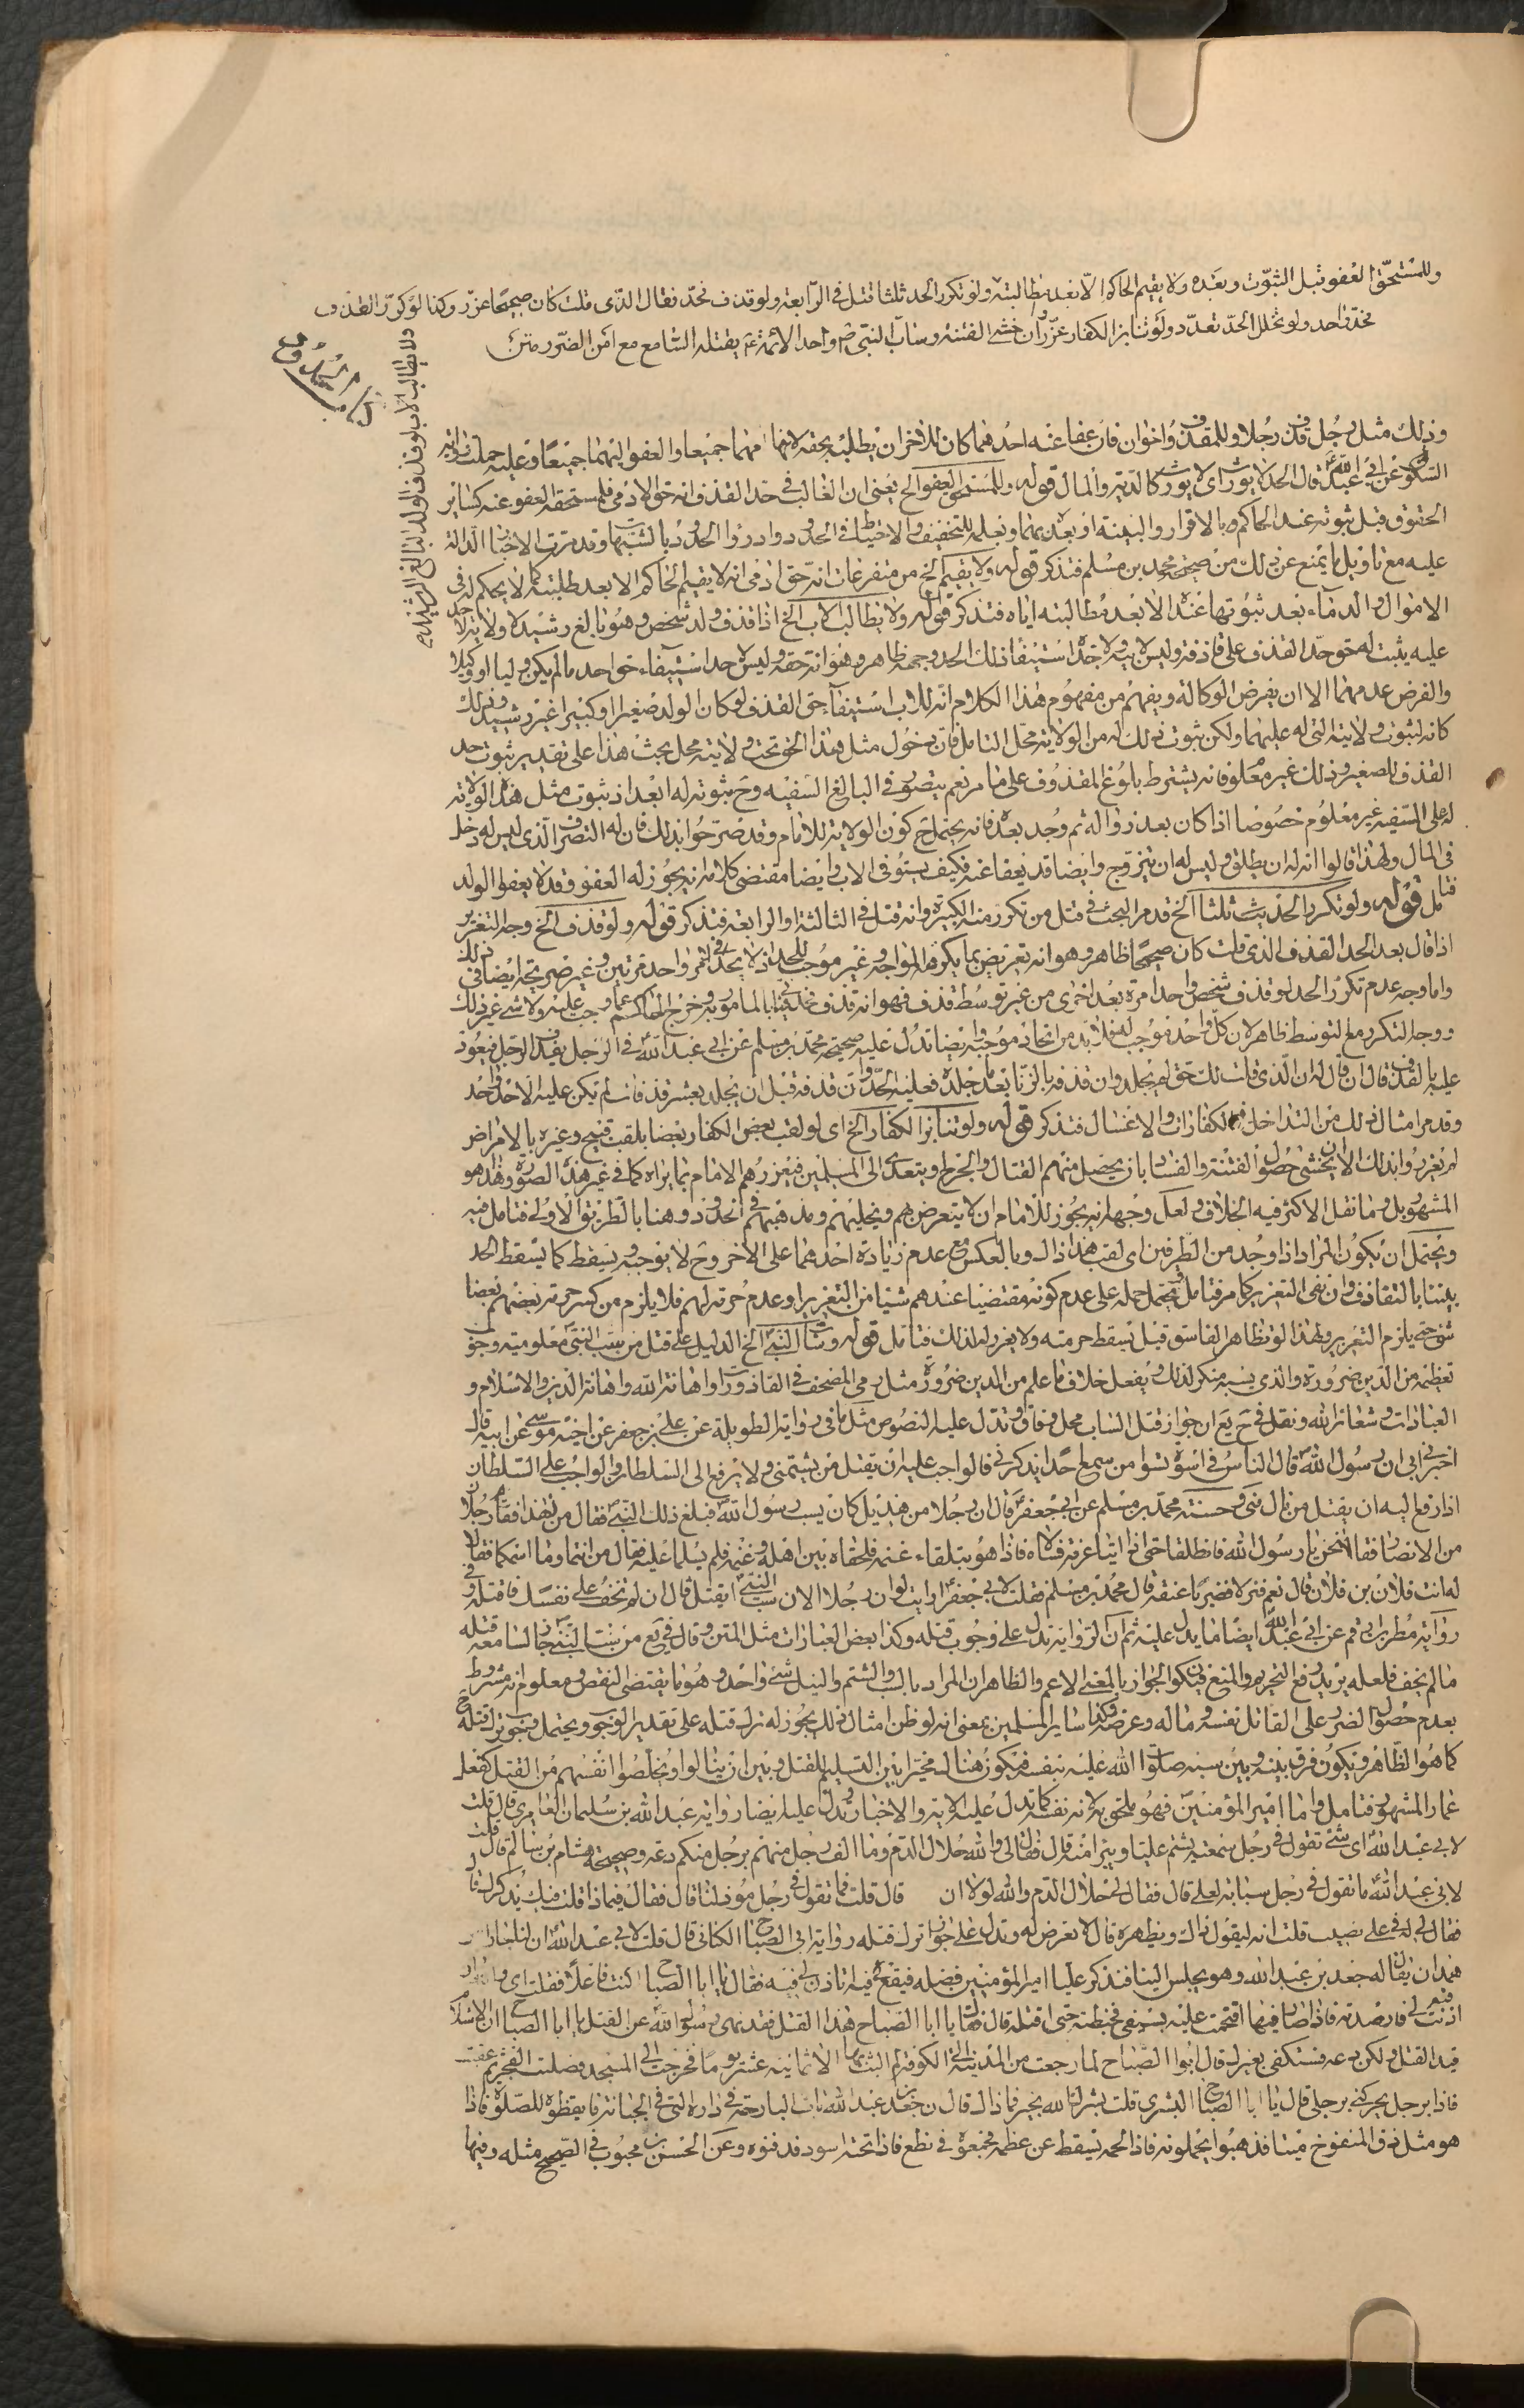 وللمستحق العفو قبل الثبوت وبعده ولا يقيم الحاكم الا بعد مطالبته ولو تكرر الحد ثلثا قتل في الرابعة ولو قذف فحد فقال الذي قلت كان صحيحا عزر وكذا لو كرر القذف
فحد واحد ولو تخلل الحد تعدد ولو تنابز الكفار عزروا ان خشي الفتنة وساب النبي واحد الائمة يقتله السامع مع امن الضرر متن
ولا يطالب الاب لو قذف الولد البالغ الرشيد
وذلك مثل رجل قذف رجلا وللمقذوف اخوان فان عفا عنه احدهما كان للاخر ان يطلبه بحقه لانها امهما جميعا والعفو اليهما جميعا وعليه حملت رواية
السكوني عن ابي عبد الله قال الحد لا يورث اي لا يورث كالدية والمال قوله وللمستحق العفو الخ يعني ان الغالب في حد القذف انه حق الادمي فلمستحقه العفو عنه كساير
الحقوق قبل ثبوته عند الحاكم وبالاقرار والبينة او بعده بهما ونعلمه للتخفيف والاحتياط في الحدود وادرؤا الحدود بالشبهات وقد مرت الاخبار الدالة
عليه مع تاويل ما يمنع عن ذلك من صحيحة محمد بن مسلم فتذكر قوله ولا يقيم الخ من متفرعات انه حق ادمي انه لا يقيم الحاكم الا بعد طلبته كما لا يحكم له في
الاموال والدماء بعد ثبوتها عنده الا بعد مطالبته اياه فتذكر قوله ولا يطالب الاب الخ اذا قذف ولد شخص وهو بالغ رشيد لا ولاية لاحد
عليه يثبت له حق حد القذف على قاذفه وليس لابيه ولا جده استيفاء ذلك الحد وجهه ظاهر وهو انه حقه وليس لاحد استيفاء حق احد ما لم يكن وليا او وكيلا
والفرض عدمهما الا ان يفرض الوكالة ويفهم من مفهوم هذا الكلام انه للاب استيفاء حق القذف لو كان الولد صغيرا او كبيرا غير رشيد وذلك
كانه لثبوت ولايته التي له عليهما ولكن ثبوت ذلك له من الولاية محل التامل فان دخول مثل هذا الحق تحت ولايته محل بحث هذا على تقدير ثبوت حد
القذف للصغير وذلك غير معلوم فانه يشترط بلوغ المقذوف على ما مر نعم يتصور في البالغ السفيه وح ثبوته له ابعد اذ ثبوت مثل هذه الولاية
له على السفيه غير معلوم خصوصا اذا كان بعد زواله ثم وجد بعده فانه يحتمل ح كون الولاية للامام وقد صرحوا بذلك فان له التصرف الذي ليس له دخل
في المال ولهذا قالوا انه له ان يطلق وليس له ان يتزوج وايضا قد يعفا عنه فكيف يستوفي الاب وايضا مقتضى كلامه انه يجوز له العفو وقد لا يعفو الولد
فتامل قوله ولو تكرر الحد ثلثا الخ قد مر البحث في قتل من تكرر منه الكبيرة وانه قتل في الثالثة او الرابعة فتذكر قوله ولو قذف الخ وجه التعزير
اذا قال بعد الحد القذف الذي قلت كان صحيحا ظاهر وهو انه تعريض بما يكره المواجه وغير موجب للحد اذ لا يحد في امر واحد مرتين وغير صريح ايضا في ذلك
واما وجه عدم تكرر الحد لو قذف شخص واحدا مرة بعد اخرى من غير توسط قذف فهو انه قذف فحد فيها بالمامور به وخرج الحاكم عما وجب عليه ولا شيء غير ذلك
ووجه التكرر مع التوسط ظاهر لان كل واحد موجب له فلا بد من اتحاد موجبه وايضا تدل عليه صحيحة محمد بن مسلم عن ابي عبد الله في الرجل يقذف الرجل فيعود
عليه بالقذف قال ان قال له ان الذي قلت لك حق لم يجلد وان قذفه بالزنا بعد ما جلد فعليه الحد وان قذفه قبل ان يجلد بعشر قذفات لم تكن عليه الا حد واحد
وقد مر امثال ذلك من التداخل في الكفارات والاغسال فتذكر قوله ولو تنابز الكفار الخ اي لو لقب بعض الكفار بعضا بلقب قبيح وعيره بالامراض
لم يعزروا بذلك الا ان يخشى حصول الفتنة والفساد بان يحصل منهم القتال والجرح او يتعدى الى المسلمين فيعزرهم الامام بما يراه كما في غير هذه الصورة وهذا هو
المشهور بل وما نقل الاكثر فيه الخلاف ولعل وجهه انه يجوز للامام ان لا يتعرض هم ويخليهم ومذهبهم في الحدود وهنا بالطريق الاولى فتامل فيه
ويحتمل ان يكون المراد اذا وجد من الطرفين اي لقب هذا ذاك وبالعكس مع عدم زيادة احدهما على الاخر وح لا يوجبه ويسقط كما يسقط الحد
بيننا بالتقاذف وان بقي التعزير كما مر فتامل ويحتمل حمله على عدم كونه مقتضيا عندهم شيئا من التعزير او عدم حرمة لهم فلا يلزم من كسر حرمة بعضهم بعضا
شيء حتى يلزم التعزير ولهذا لو تظاهر الفاسق قبل تسقط حرمته ولا يعزر له لذلك فتامل قوله وساب النبي الخ الدليل على قتل من سب النبي معلومية وجوب
تعظيمه من الدين ضرورة والذي يسبه منكر لذلك ويفعل خلاف ما علم من الدين ضرورة مثل رمي المصحف في القاذورات واهانة الله واهانة الدين والاسلام و
العبادات وشعائر الله ونقل في ح يع ان جواز قتل الساب محل وفاق وتدل عليه النصوص مثل ما في رواية الطويلة عن علي بن جعفر عن اخيه موسى عن ابيه قال
اخبرني ابي ان رسول الله قال الناس في اسوة سواء من سمع احدا يذكرني فالواجب عليه ان يقتل من يشتمني ولا يرفع الى السلطان والواجب على السلطان
اذا رفع اليه ان يقتل من نال مني وحسنة محمد بن مسلم عن ابي جعفر قال ان رجلا من هذيل كان يسب رسول الله فبلغ ذلك النبي فقال من لهذا فقام رجلا
من الانصار فقالا نحن يا رسول الله فانطلقا حتى اتيا عرنة فسالا فاذا هو يتلقاء غنمه فلحقاه بين اهله وغنمه فلم يسلما عليه فقال من انتما وما اسمكما فقالا
له انت فلان بن فلان قال نعم فنزلا فضربا عنقه قال محمد بن مسلم فقلت لابي جعفر ارايت لو ان رجلا الان سب النبي ايقتل قال ان لم تخف على نفسك فاقتله وفي
رواية مطر بن ارقم عن ابي عبد الله ايضا ما يدل عليه ثم ان الرواية تدل على وجوب قتله وكذا بعض العبارات مثل المتن وقال في يع من سب النبي جاز لسامعه قتله
ما لم يخف فلعله يريد رفع التحريم والمنع فيكون الجواز بالمعنى الاعم والظاهر ان المراد بالسب والشتم والنيل شئ واحد وهو ما يقتضي النقص ومعلوم انه مشروط
بعدم حصول الضرر على القاتل نفسه وماله وعرضه وكذا ساير المسلمين بمعنى انه لو ظن امثال ذلك يجوز له ترك قتله على تقدير الوجوب ويحتمل وجوب ترك قتله ح
كما هو الظاهر ويكون فرق بينه وبين سبه صلوات الله عليه بنفسه فيكون هنالك مخيرا بين التسليم للقتل وبين ان ينالوا ويخلصوا انفسهم من القتل كفعل
عمار المشهور فتامل واما امير المؤمنين فهو ملحق به لانه نفسه كما تدل عليه الاية والاخبار وتدل عليه ايضا رواية عبد الله بن سليمان العامري قال قلت
لابي عبد الله اي شئ تقول في رجل سمعته يشتم عليا ويبرأ منه قال فقال لي والله حلال الدم وما الف رجل منهم برجل منكم دعه وصحيحة هشام بن سالم قال قلت
لابي عبد الله ما تقول في رجل سبابة لعلي قال فقال لي حلال الدم والله لولا ان قال قلت فما تقول في رجل مؤذ لنا قال فقال فيماذا قلت فيك يذكرك قال
فقال لي له في علي نصيب قلت انه ليقول ذاك ويظهره قال لا تعرض له وتدل على جواز ترك قتله رواية ابي الصباح الكناني قال قلت لابي عبد الله ان لنا جارا من
همدان يقال له جعد بن عبد الله وهو يجلس الينا فنذكر عليا امير المؤمنين وفضله فيقع فيه افتاذن لي فيه فقال يا ابا الصباح اكنت فاعلا فقلت اي والله لئن
اذنت لي فيه لارصدنه فاذا صار فيها اقتحمت عليه بسيفي فخبطته حتى اقتله قال فقال يا ابا الصباح هذا القتل فقد نهى رسول الله عن القتل يا ابا الصباح ان الاسلام
قيد القتل ولكن دعه فستكفى بغيرك قال ابوا الصباح لما رجعت من المدينة الى الكوفة لم البث بها الا ثمانية عشر يوما فخرجت الى المسجد فصليت الفجر ثم عقبت
فاذا برجل يحركني برجله قال يا ابا الصباح البشرى قلت بشرك الله بخير فما ذاك قال ان جعد بن عبد الله بات البارحة في داره التي في الجبانة فايقظوه للصلوة فاذا
هو مثل زق المنفوخ ميتا فذهبوا يحملونه فاذا لحمه يسقط عن عظمه فجمعوه في نطع فاذا تحته اسود فدفنوه وعن الحسن بن محبوب في الصحيح مثله وفيها